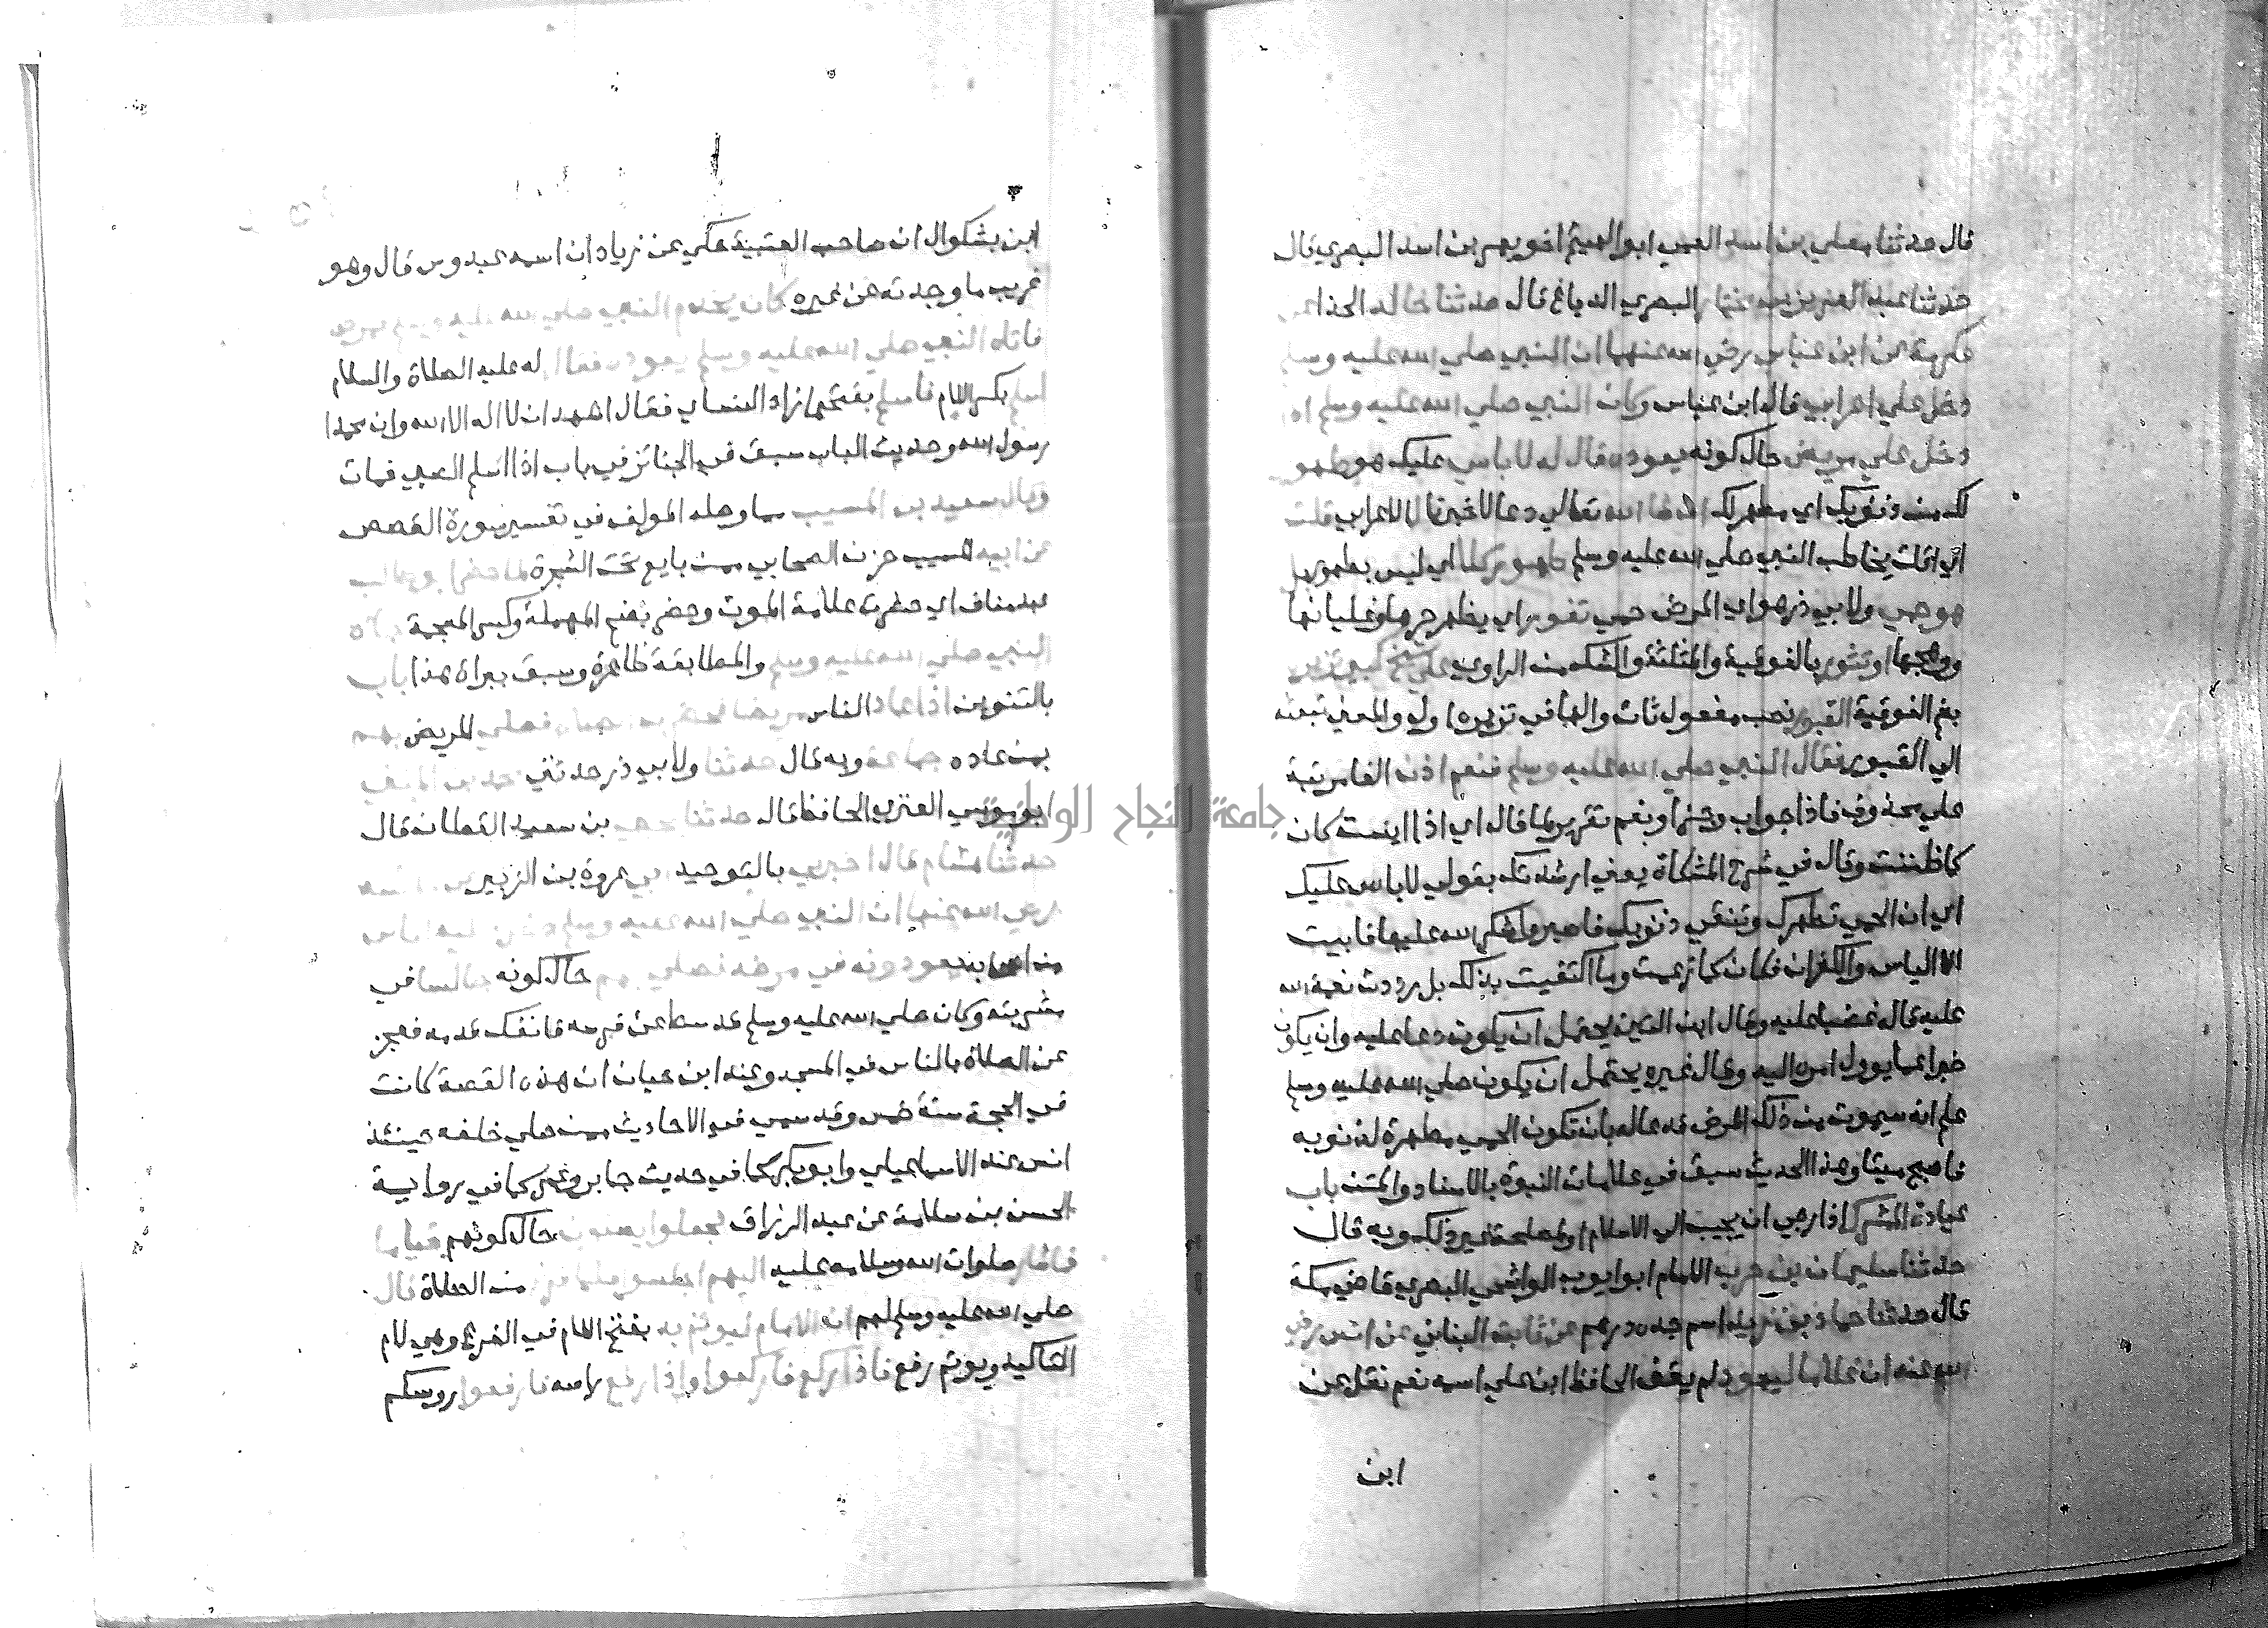 قال حدثنا معلي بن اسد العمي ابو الهيثم اخو بهز بن اسد البصري قال
حدثنا عبد العزيز بن مختار البصري الدباغ قال حدثنا خالد الحذا عن
عكرمة عن ابن عباس رضي الله عنهما ان النبي صلي الله عليه وسلم
دخل علي اعرابي قال ابن عباس وكان النبي صلي الله عليه وسلم اذا
دخل علي مريض حال كونه يعوده قال له لا باس عليك هو طهور
لك من ذنوبك اي مطهر لك ان شا الله تعالي دعا لا خبر قال الاعرابي قلت
اي اقلت يخاطب النبي صلي الله عليه وسلم طهور كلا اي ليس بطهور بل
هو حمي ولابي ذر هو اي المرض حمي تفور اي يظهر حرها وغليانها
ووهجها او تثور بالفوقية والمثلثة والشك من الراوي علي شيخ كبير تزيره
بضم الفوقية القبور نصب مفعول ثان والها في تزيره اول والمعني تبعثه
الي القبور فقال النبي صلي الله عليه وسلم فنعم اذن الفا مرتبة
علي محذوف فاذا جواب وجزا ونعم تقرير لما قال اي اذا ابيت كان
كما ظننت وقال في شرح المشكاة يعني ارشدتك بقولي لا باس عليك
اي ان الحمي تطهرك وتنقي ذنوبك فاصبر واشكر الله عليها فابيت
الا الياس والكفران فكان كما زعمت وما اكتفيت بذلك بل رددت نعمة الله
عليه قاله غضبا عليه وقال ابن التين يحتمل ان يكون دعا عليه وان يكون
خبرا عما يوول امره اليه وقال غيره يحتمل ان يكون صلي الله عليه وسلم
علم انه سيموت من ذلك المرض فدعا له بان تكون الحمي مطهرة لذنوبه
فاصبح ميتا وهذا الحديث سبق في علامات النبوة بالاسناد والمتن باب
عيادة المشرك اذا رجي ان يجيب الي الاسلام او لمصلحة غير ذلك وبه قال
حدثنا سليمان بن حرب الامام ابو ايوب الواشحي البصري قاضي مكة
قال حدثنا حماد بن زيد اسم جده درهم عن ثابت البناني عن انس رضي
الله عنه ان غلاما ليهود لم يقف الحافظ ابن علي اسمه نعم نقل عن
ابن
ابن بشكوال ان صاحب العتبية حكي عن زياد ان اسمه عبدوس قال وهو
غريب ما وجدته عن غيره كان يخدم النبي صلي الله عليه وسلم فمرض
فاتاه النبي صلي الله عليه وسلم يعوده فقال له عليه الصلاة والسلام
اسلم بكسر اللام فاسلم بفتحها زاد النساي فقال اشهد ان لا اله الا الله وان محمدا
رسول الله وحديث الباب سبق في الجنائز في باب اذا اسلم الصبي فمات
وقال سعيد بن المسيب مما وصله المولف في تفسير سورة القصص
عن ابيه المسيب حزن الصحابي ممن بايع تحت الشجرة لما حضر ابو طالب
عبد مناف اي حضرت علامة الموت وحضر بضم المهملة وكسر المعجمة جاه
النبي صلي الله عليه وسلم والمطابقة ظاهرة وسبق ببراة هذا باب
بالتنوين اذا عاد الناس مريضا فحضرت الصلاة فصلي المريض بهم
بمن عاده جماعة وبه قال حدثنا ولابي ذر حدثني محمد بن المثني
ابو موسي العنزي الحافظ قال حدثنا يحيي بن سعيد القطان قال
حدثنا هشام قال اخبرني بالتوحيد ابي عروة بن الزبير عن عائشة
رضي الله عنها ان النبي صلي الله عليه وسلم دخل عليه ناس
من اصحابه يعودونه في مرضه فصلي بهم حال كونه جالسا في
مشربته وكان صلي الله عليه وسلم قد سقط عن فرسه فانفك قدمه فعجز
عن الصلاة بالناس في المسجد وعند ابن حبان ان هذه القصة كانت
في الحجة سنة خمس وقد سمي في الاحاديث ممن صلي خلفه حينئذ
انس عند الاسماعيلي وابو بكر كما في حديث جابر وعمر كما في رواية
الحسن بن سلامة عن عبد الرزاق فجعلوا يصلون حال كونهم قياما
فاشار صلوات الله وسلامه عليه اليهم اجلسوا فلما فرغ من الصلاة قال
صلي الله عليه وسلم لهم ان الامام ليوتم به بفتح اللام في الفرع وهي لام
التاكيد ويوتم رفع فاذا ركع فاركعوا واذا رفع راسه فارفعوا روسكم
جامعة النجاح الوطنية